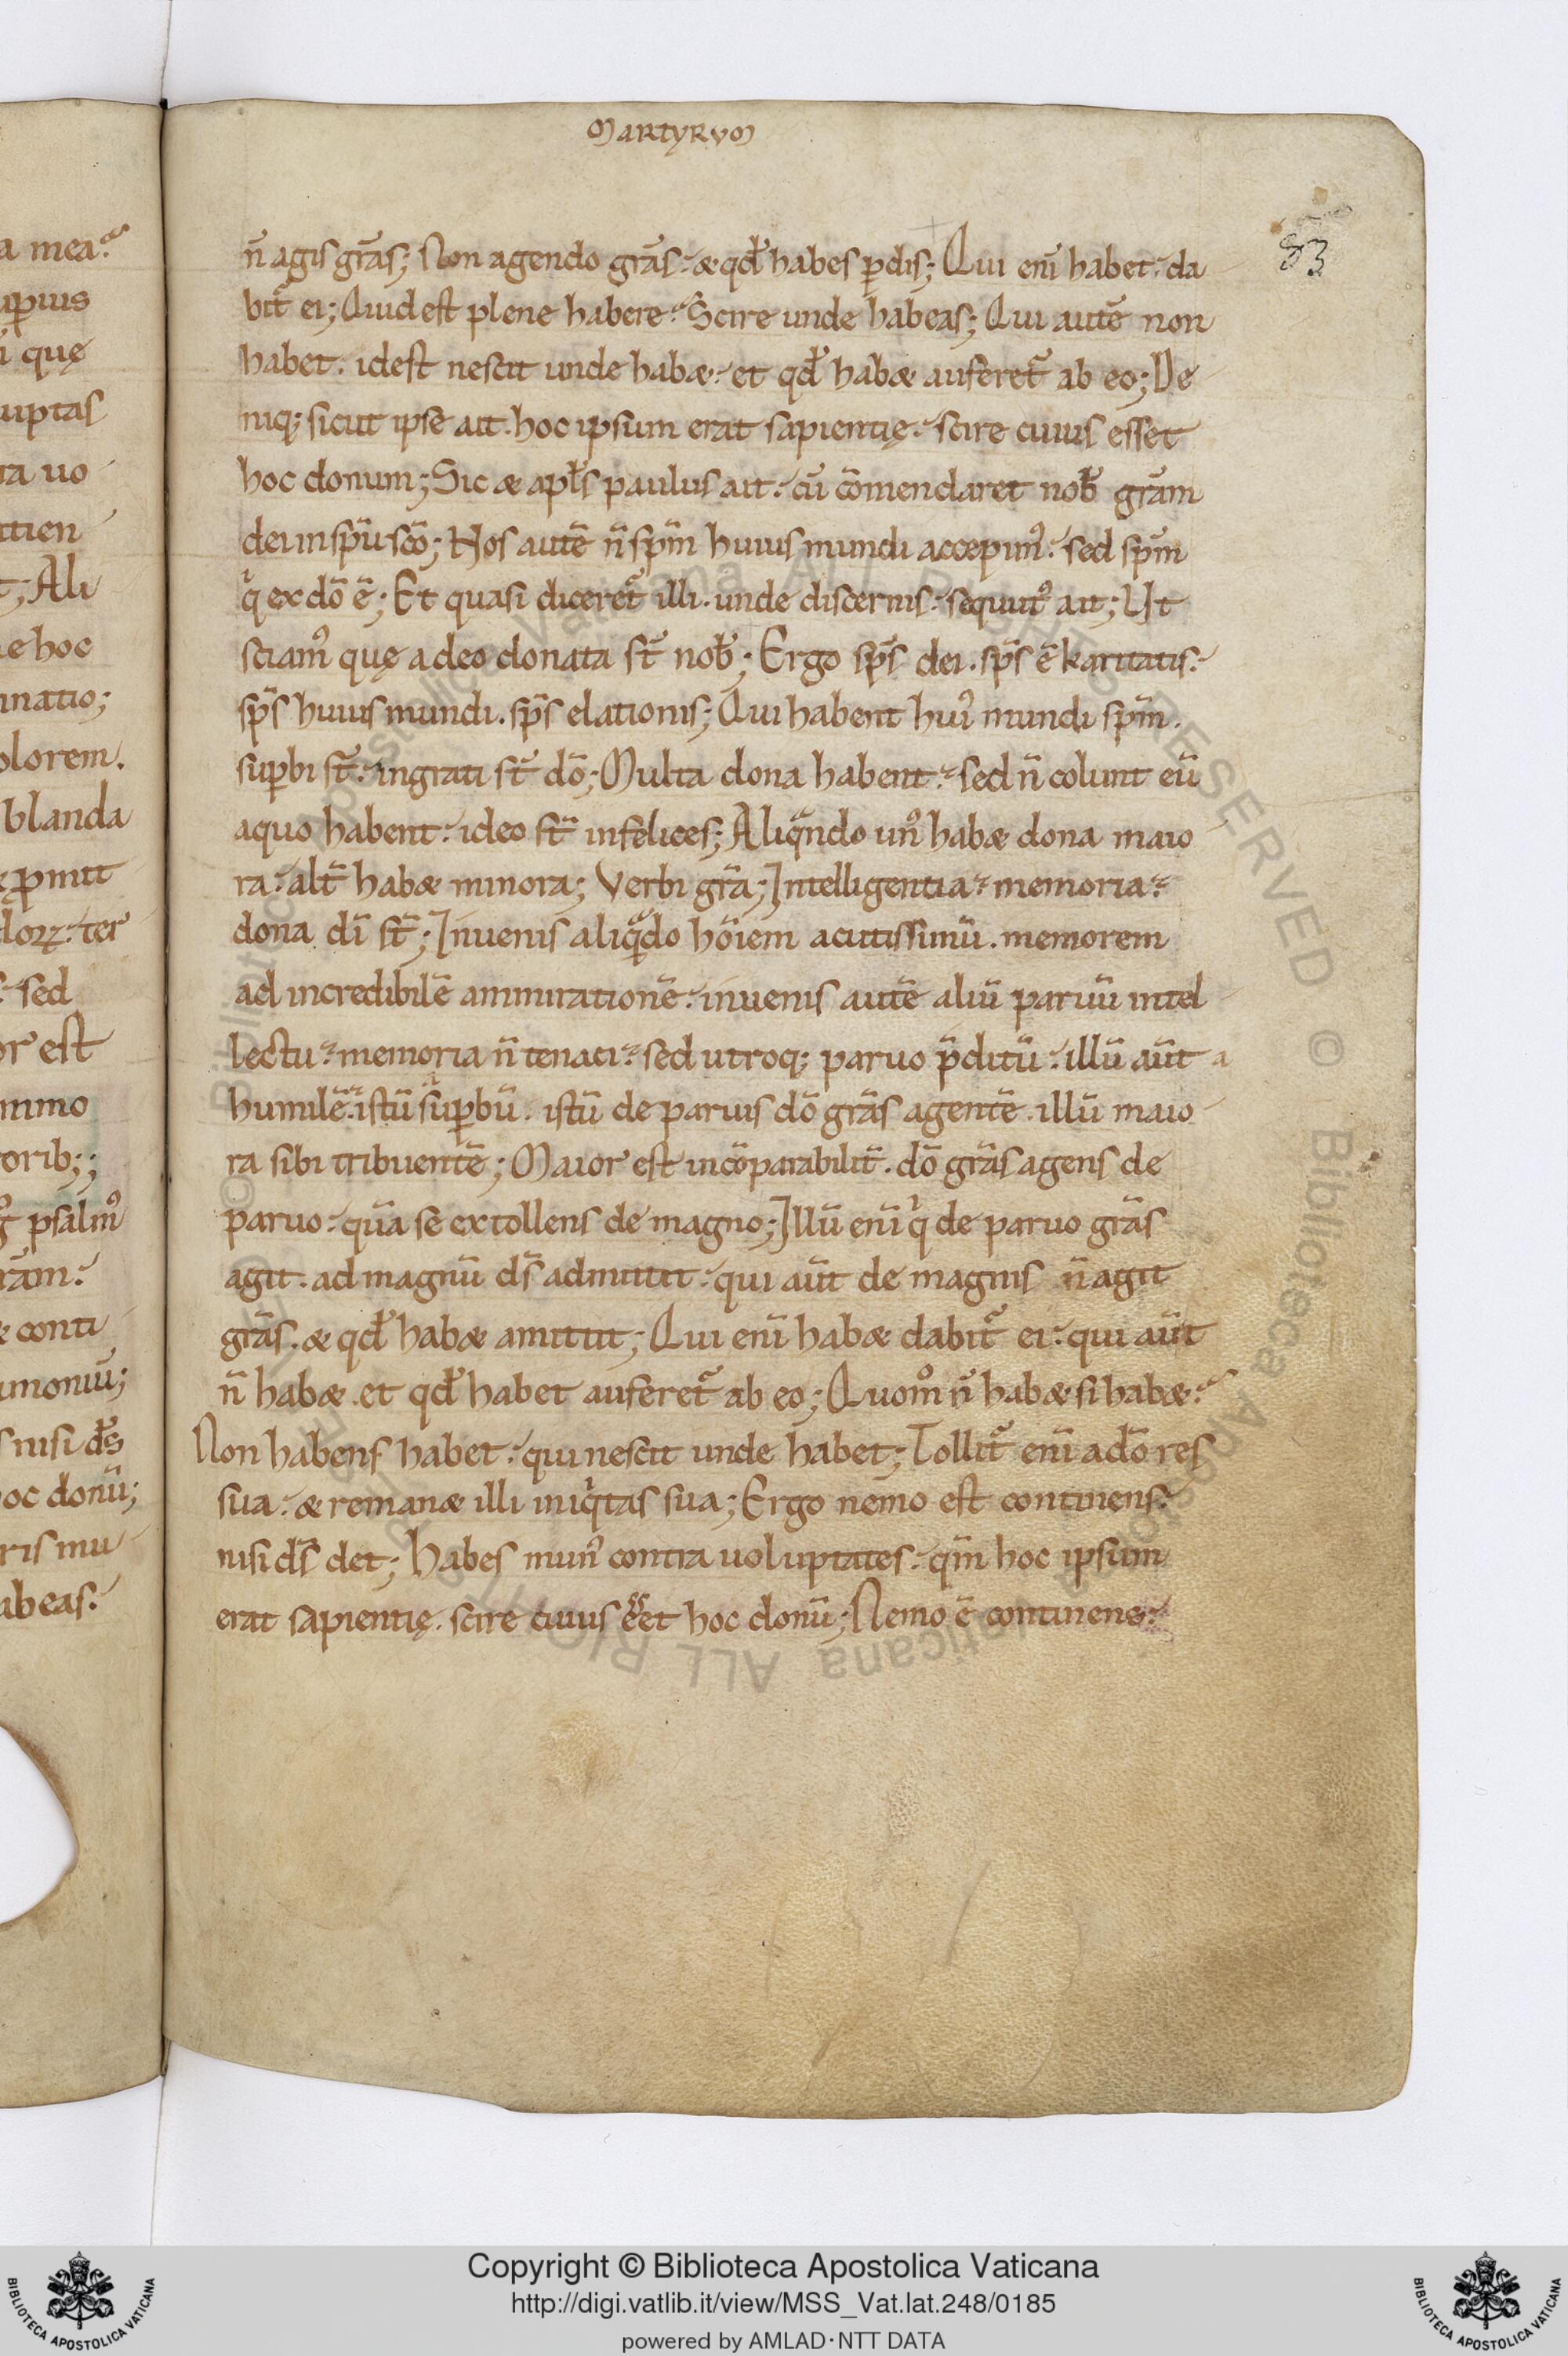 MARTYRUM
a mea.
uperius
i quę
uptas
ta uo
ttien
t; Ali
e hoc
inatio;
olorem.
blanda
& ꝓmit
dorꝝ. ter
sed
or est
mmo
orib;;
g̉ psalm᷒
rām.
& conti
imoniū;
s nisi d̄s
oc donū;
ris mu
abeas.
83
n̄ agis grās; Non agendo grās. & qd̄ habes ꝑdis; Qui enī habet. da
bit̄ ei; Quid est plene habere. Scire unde habeas; Qui autē non
habet. id est nescit unde hab&. et qd̄ hab& auferet̄ ab eo; De
niq; sicut ipse ait. hoc ipsum erat sapientię. scire cuius esset
hoc donum; Sic & apl̄s paulus ait. cū cōmendaret nob̄ grām
dei in spū scō; Nos autē n̄ spm̄ huius mundi accepim᷒. sed spm̄
qͥ ex dō ē; Et quasi diceret̄ illi. unde discernis. sequut᷒ ait; Ut
sciam᷒ quę a deo donata st̄ nob̄; Ergo sp̄s dei. sp̄s ē karitatis.
sp̄s huius mundi. sp̄s elationis; Qui habent hui᷒ mundi spm̄.
suꝑbi st̄. ingrati st̄ dō; Multa dona habent. sed n̄ colunt eū
a quo habent. ideo st̄ infelices; Aliqͣndo un᷒ hab& dona maio
ra. alt̄ hab& minora; Verbi grā; Intelligentia. memoria.
dona dī st̄; Inuenis aliqͣdo hōiem acutissimū. memorem
ad incredibilē ammirationē. inuenis autē aliū paruū intel
lectu. memoria n̄ tenaci. sed utroq; paruo p̄ditū. illū aūt
humilē. istū suꝑbū. istū de paruis dō grās agentē. illū maio
ra sibi tribuentē; Maior est incōparabilit̄. dō grās agens de
paruo. quā se extollens de magno; Illū enī qͥ de paruo grās
agit. ad magnū d̄s admittit. qui aūt de magnis n̄ agit
grās. & qd̄ hab& amittit; Qui enī hab& dabit̄ ei. qui aūt
n̄ hab&. et qd̄ habet auferet̄ ab eo; Quom̊ n̄ hab& si hab&.
Non habens habet. qui nescit unde habet; Tollit̄ enī a dō res
sua. & reman& illi iniqͥtas sua; Ergo nemo est continens.
nisi d̄s det; Habes mun᷒ contra uoluptates. qm̄ hoc ipsum
erat sapientię. scire cuius eēt hoc donū; Nemo ē continens.
Copyright © Biblioteca Apostolica Vaticana
http://digi.vatlib.it/view/MSS_Vat.lat.248/0185
powered by AMLAD·NTT DATA
BIBLIOTECA APOSTOLICA VATICANA
BIBLIOTECA APOSTOLICA VATICANA